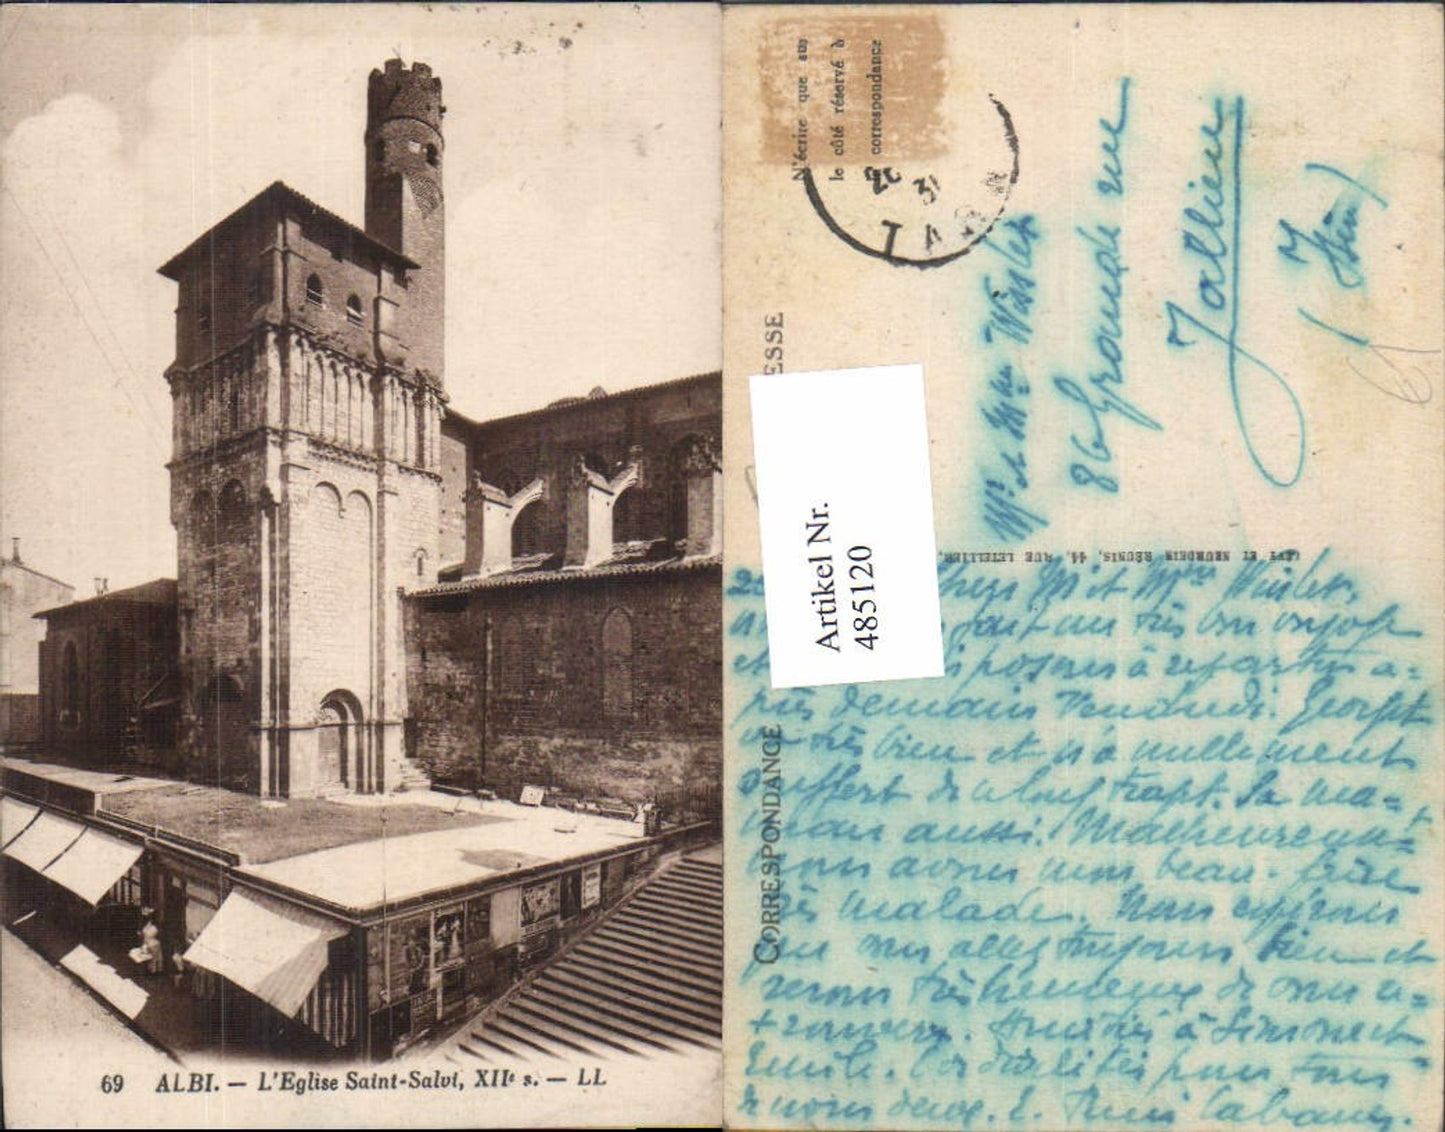 69 ALBI. — L'Eglise Saint-Salvi, XIIe s. — LL
N'écrire que sur
le côté réservé à
correspondance
31
ESSE
Mr & Mme Winsler
86 Grande rue
Jallieu
(Isère)
Artikel Nr.
485120
LEVY ET NEURDEIN RÉUNIS, 44, RUE LETELLIER,
CORRESPONDANCE
Chers Mr et Mme
fait un très bon voyage
et disposons à repartir a-
près demain Vendredi. Georget
va très bien et n'a nullement
souffert de ce long trajet. Sa ma-
man aussi. Malheureuse-t
nous avons mon beau-frère
très malade. Nous espérons
que vous allez toujours bien et
serons très heureux de vous re-
trouver. Amitiés à Simone et
Emile. Cordialités pour tous
de nous deux. Cabanes.